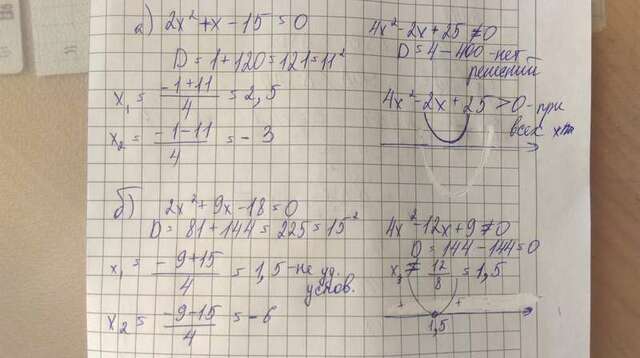 а) 2x² + x - 15 = 0
D = 1 + 120 = 121 = 11²
x₁ = (-1+11)/4 = 2,5
x₂ = (-1-11)/4 = -3
4x² - 2x + 25 ≠ 0
D = 4 - 400 - нет
решений
4x² - 2x + 25 > 0 - при
всех x
б) 2x² + 9x - 18 = 0
D = 81 + 144 = 225 = 15²
x₁ = (-9+15)/4 = 1,5 - не уд.
услов.
x₂ = (-9-15)/4 = -6
4x² - 12x + 9 ≠ 0
D = 144 - 144 = 0
x₁ ≠ 12/8 = 1,5
+ +
1,5